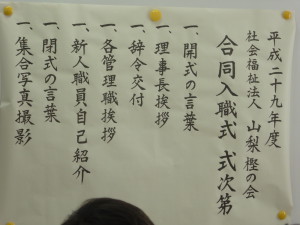 平成二十九年度
社会福祉法人 山梨樫の会
合同入職式 式次第
一、開式の言葉
一、理事長挨拶
一、辞令交付
一、各管理職挨拶
一、新人職員自己紹介
一、閉式の言葉
一、集合写真撮影